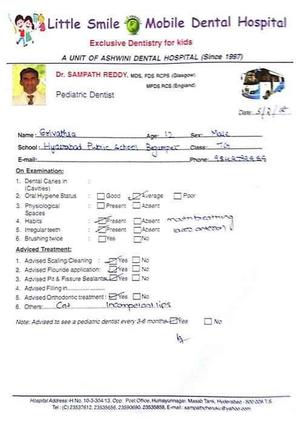 Little Smile Mobile Dental Hospital
Exclusive Dentistry for kids
A UNIT OF ASHWINI DENTAL HOSPITAL (Since 1997)
Dr. SAMPATH REDDY, MDS, FDS RCPS (Glasgow)
MFDS RCS (England)
Pediatric Dentist
Date:
Name: Age: 12 Sex: Male
School: Hyderabad Public School Begumpet Class:
E-mail: Phone:
On Examination:
1. Dental Caries in (Cavities)
2. Oral Hygiene Status Good Average Poor
3. Physiological Spaces Present Absent
4. Habits Present Absent mouth breathing
5. Irregular teeth Present Absent
6. Brushing twice Yes No
Adviced Treatment:
1. Advised Scaling/Cleaning : Yes No
2. Advised Flouride application: Yes No
3. Advised Pit & Fissure Sealants Yes No
4. Advised Filling in
5. Advised Orthodontic treatment : Yes No
6. Others: Incompetent lips
Note: Advised to see a pediatric dentist every 3-6 months Yes No
Hospital Address: H.No. 10-3-304/13, Opp. Post Office, Humayunnagar, Masab Tank, Hyderabad - 500 028 T.S.
Tel : (C) 23537612, 23535656, 23590690, 23535858, E-mail :